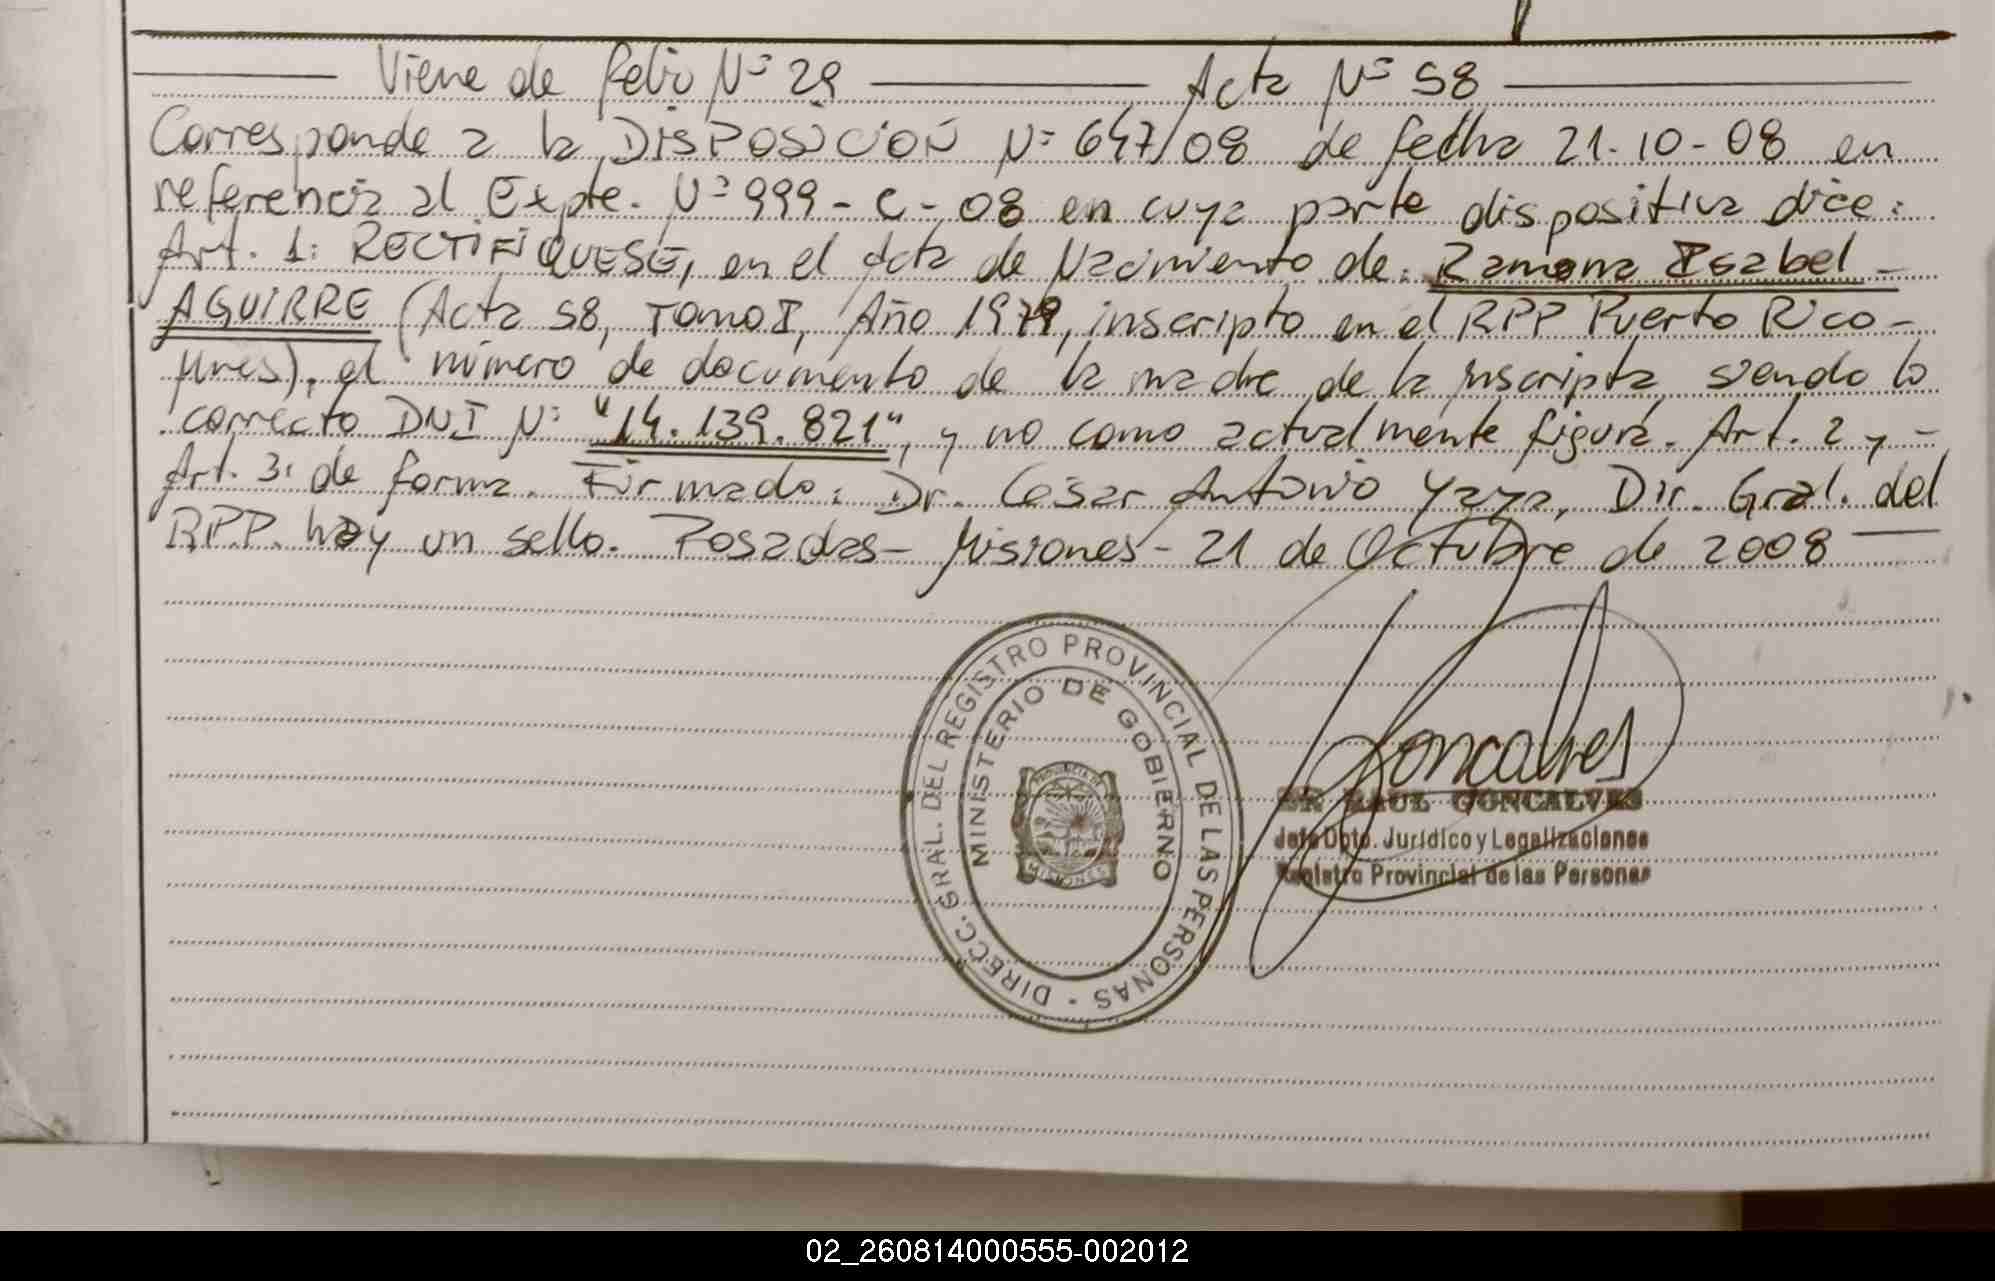 Viene de folio Nº 29 Acta Nº 58
Corresponde a la DISPOSICIÓN Nº 647/08 de fecha 21-10-08 en
referencia al Expte. Nº 999-C-08 en cuya parte dispositiva dice:
Art. 1: RECTIFIQUESE, en el Acta de Nacimiento de: Ramona Isabel -
AGUIRRE (Acta 58, Tomo I, Año 1979, inscripto en el RPP Puerto Rico -
Mnes), el número de documento de la madre de la inscripta, siendo lo
correcto DNI Nº "14.139.821", y no como actualmente figura. Art. 2 y -
Art. 3: de forma. Firmado: Dr. César Antonio Yaya, Dir. Gral. del
RPP. hay un sello. Posadas - Misiones - 21 de Octubre de 2008
DIRECC. GRAL. DEL REGISTRO PROVINCIAL DE LAS PERSONAS -
MINISTERIO DE GOBIERNO
PROVINCIA DE
MISIONES
Goncalves
DR RAUL GONCALVES
Jefe Dpto. Jurídico y Legalizaciones
Registro Provincial de las Personas
02_260814000555-002012